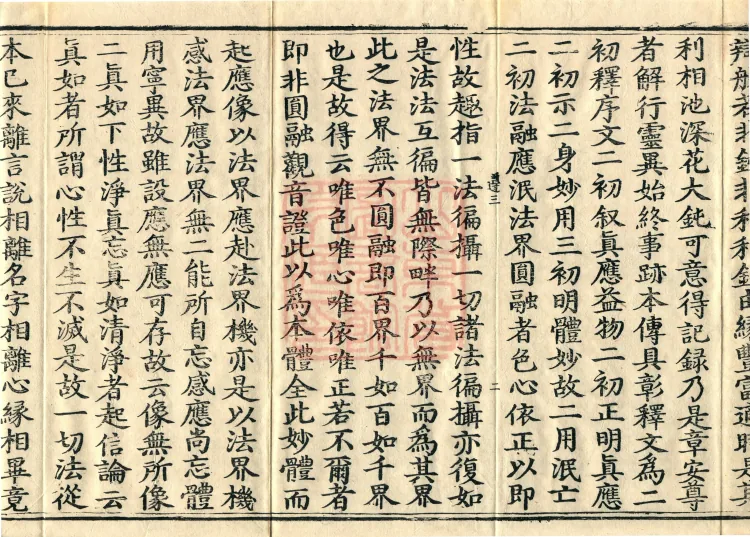 利相池深花大鈍可意得記録乃是章安尊
者解行靈異始終事跡本傳具彰釋文為二
初釋序文二初叙真應益物二初正明真應
二初示二身妙用三初明體妙故二用泯亡
二初法融應泯法界圓融者色心依正以即
性故趣指一法徧攝一切諸法徧攝亦復如
是法法互徧皆無際畔乃以無界而為其界
此之法界無不圓融即百界千如百如千界
也是故得云唯色唯心唯依唯正若不爾者
即非圓融觀音證此以為本體全此妙體而
起應像以法界應赴法界機亦是以法界機
感法界應法界無二能所自忘感應尚忘體
用寧異故雖設應無應可存故云像無所像
二真如下性淨真忘真如清淨者起信論云
真如者所謂心性不生不滅是故一切法從
本已來離言說相離名字相離心緣相畢竟